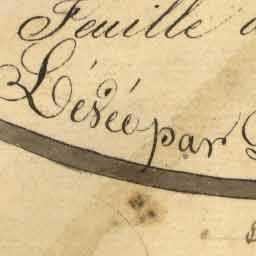 Feuille
Lévée par